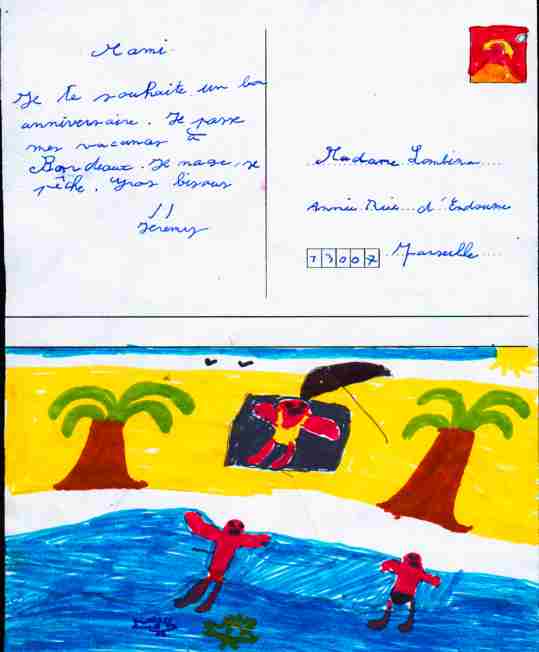 Mami
Je te souhaite un bon
anniversaire. Je passe
mes vacances à
Bordeaux. Je nage, je
pêche. gros bisous
Jeremy
Madame Lombira
Annie Rue d'Endoume
13007 Marseille